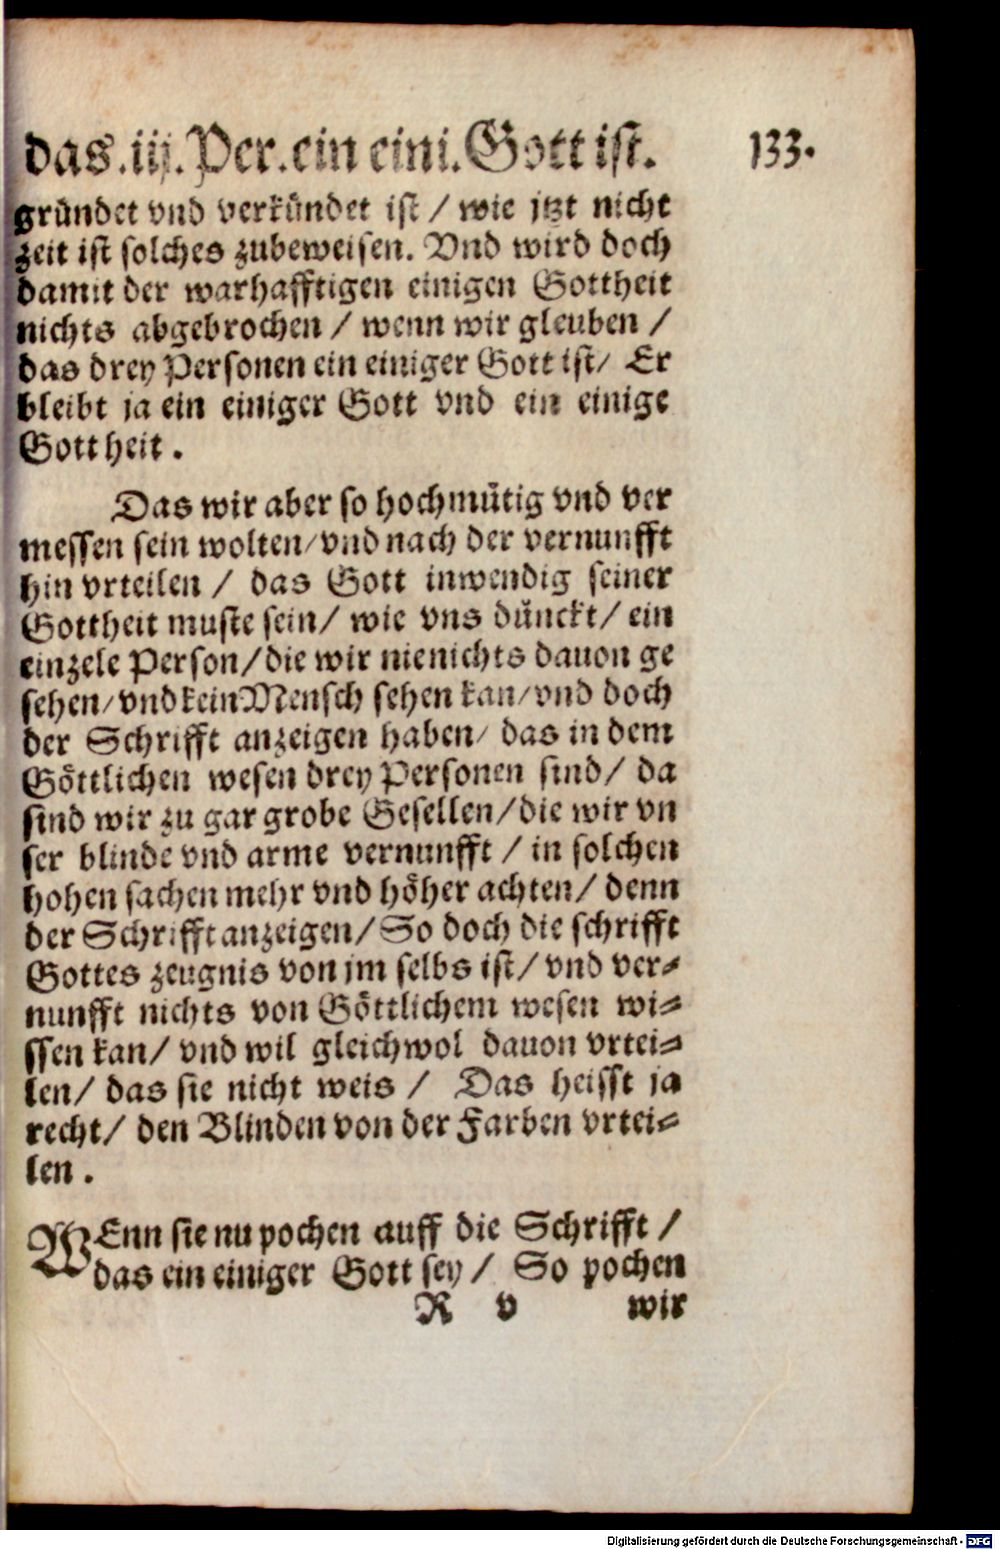 das.iij.Per.ein eini.Gott ist. 133.
gründet vnd verkündet ist / wie jtzt nicht
zeit ist solches zubeweisen. Vnd wird doch
damit der warhafftigen einigen Gottheit
nichts abgebrochen / wenn wir gleuben /
das drey Personen ein einiger Gott ist/ Er
bleibt ja ein einiger Gott vnd ein einige
Gottheit.
Das wir aber so hochmütig vnd ver
messen sein wolten/vnd nach der vernunfft
hin vrteilen / das Gott inwendig seiner
Gottheit muste sein/ wie vns dünckt/ ein
einzele Person/die wir nie nichts dauon ge
sehen/vnd kein Mensch sehen kan/vnd doch
der Schrifft anzeigen haben/ das in dem
Göttlichen wesen drey Personen sind/ da
sind wir zu gar grobe Gesellen/die wir vn
ser blinde vnd arme vernunfft / in solchen
hohen sachen mehr vnd höher achten/ denn
der Schrifft anzeigen/So doch die schrifft
Gottes zeugnis von jm selbs ist/ vnd ver⸗
nunfft nichts von Göttlichem wesen wi⸗
ssen kan/ vnd wil gleichwol dauon vrtei⸗
len/ das sie nicht weis / Das heisst ja
recht/ den Blinden von der Farben vrtei⸗
len.
WEnn sie nu pochen auff die Schrifft /
das ein einiger Gott sey / So pochen
R v wir
Digitalisierung gefördert durch die Deutsche Forschungsgemeinschaft - DFG